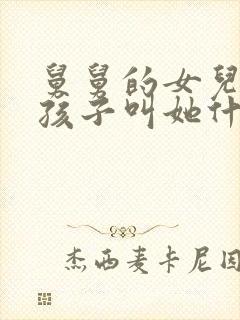 舅舅的女兒
孩子叫她什
杰西麦卡尼因